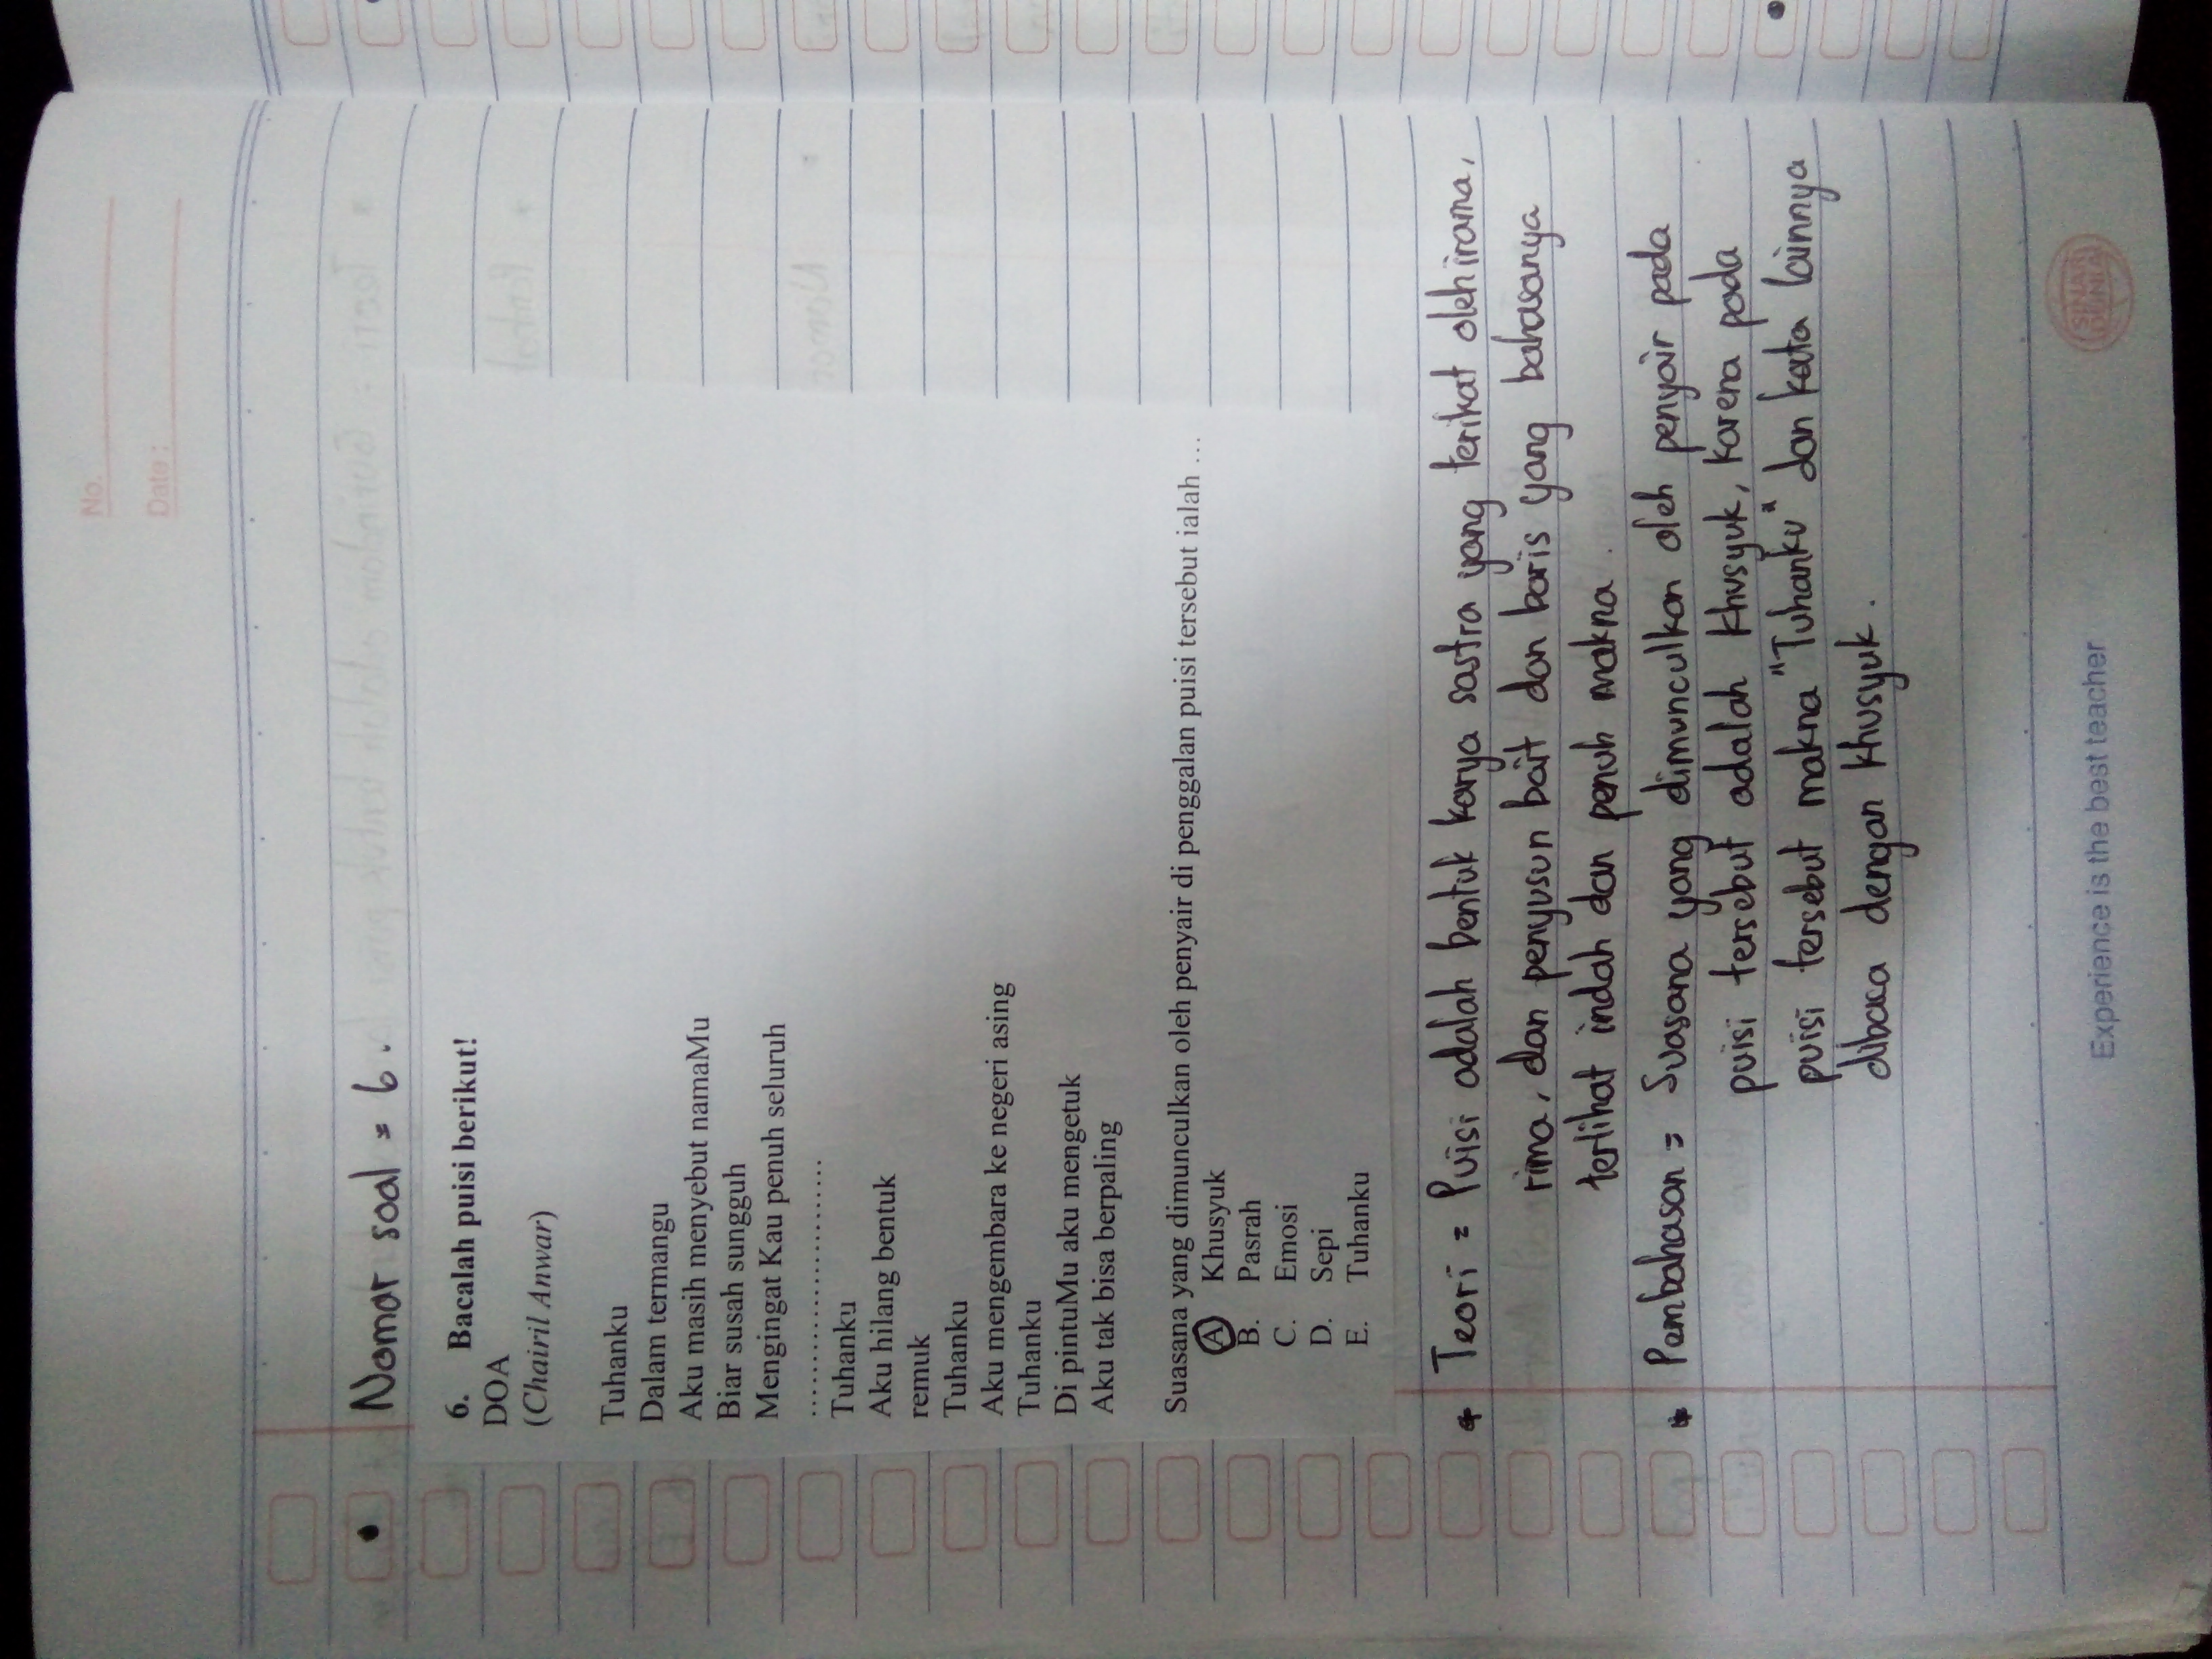 No.
Date :
Nomor soal = 6.
6. Bacalah puisi berikut!
DOA
(Chairil Anwar)
Tuhanku
Dalam termangu
Aku masih menyebut namaMu
Biar susah sungguh
Mengingat Kau penuh seluruh
........................
Tuhanku
Aku hilang bentuk
remuk
Tuhanku
Aku mengembara ke negeri asing
Tuhanku
Di pintuMu aku mengetuk
Aku tak bisa berpaling
Suasana yang dimunculkan oleh penyair di penggalan puisi tersebut ialah ...
A Khusyuk
B. Pasrah
C. Emosi
D. Sepi
E. Tuhanku
* Teori = Puisi adalah bentuk karya sastra yang terikat oleh irama,
rima, dan penyusun bait dan baris yang bahasanya
terlihat indah dan penuh makna.
* Pembahasan = Suasana yang dimunculkan oleh penyair pada
puisi tersebut adalah khusyuk, karena pada
puisi tersebut makna "Tuhanku" dan kata lainnya
dibaca dengan khusyuk.
Experience is the best teacher
SINAR
DUNIA